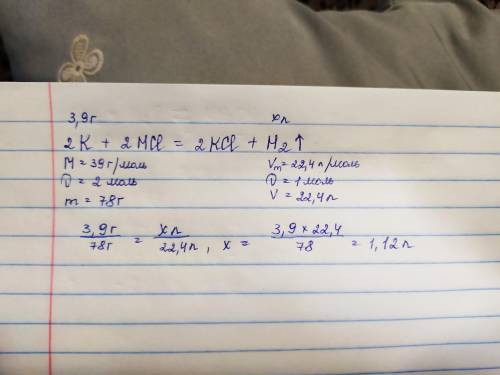 3,9г хл
2K + 2HCl = 2KCl + H₂↑
M = 39г/моль Vₘ = 22,4л/моль
ν = 2 моль ν = 1 моль
m = 78г V = 22,4л
3,9г/78г = хл/22,4л, x = 3,9 × 22,4/78 = 1,12л